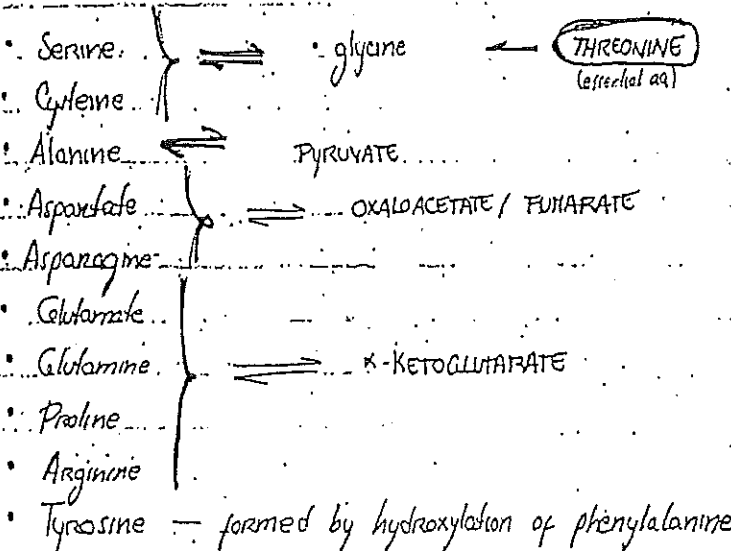 • Serine } ⇌ • glycine ← THREONINE
(essential aa)
• Cysteine
• Alanine ⇌ PYRUVATE
• Aspartate } ⇌ OXALOACETATE / FUMARATE
• Asparagine
• Glutamate
• Glutamine } ⇌ α-KETOGLUTARATE
• Proline
• Arginine
• Tyrosine — formed by hydroxylation of phenylalanine